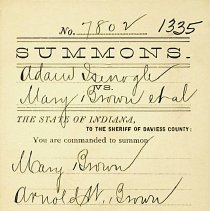 No. 7802 1335
SUMMONS.
Adam Isenogle
vs.
Mary Brown et al
THE STATE OF INDIANA,
TO THE SHERIFF OF DAVIESS COUNTY:
You are commanded to summon
Mary Brown
Arnold W. Brown